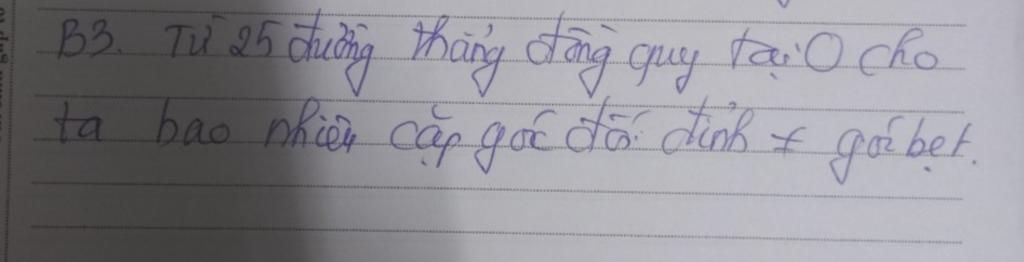 B3. Từ 25 đường thẳng đồng quy tại O cho
ta bao nhiêu cặp góc đối đỉnh ≠ góc bẹt.